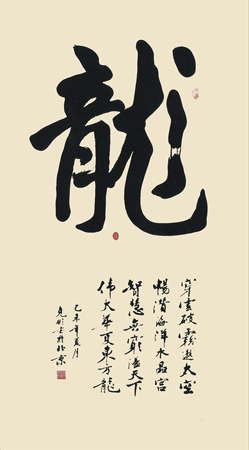 龍
穿雲破霧遨太空
暢潛海洋水晶宮
智慧無窮溢天下
偉大華夏東方龍
乙未年夏月
書於北京